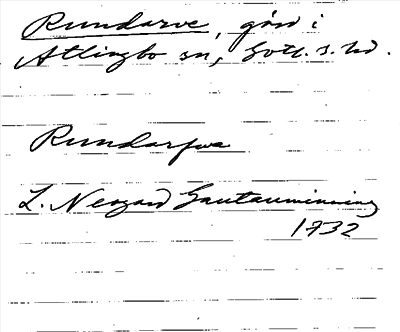 Rundarve, gård i
Atlingbo sn, Gotl. s. hd.
Rundarfwe
L. Neogard Gautauminning
1732